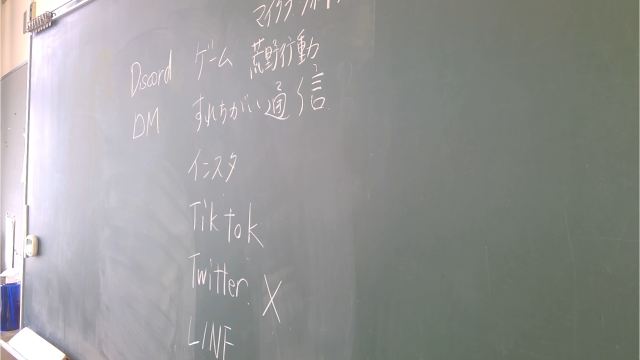 マイクラ
Discord ゲーム 荒野行動
DM すれちがい通信
インスタ
Tik tok
Twitter X
LINE